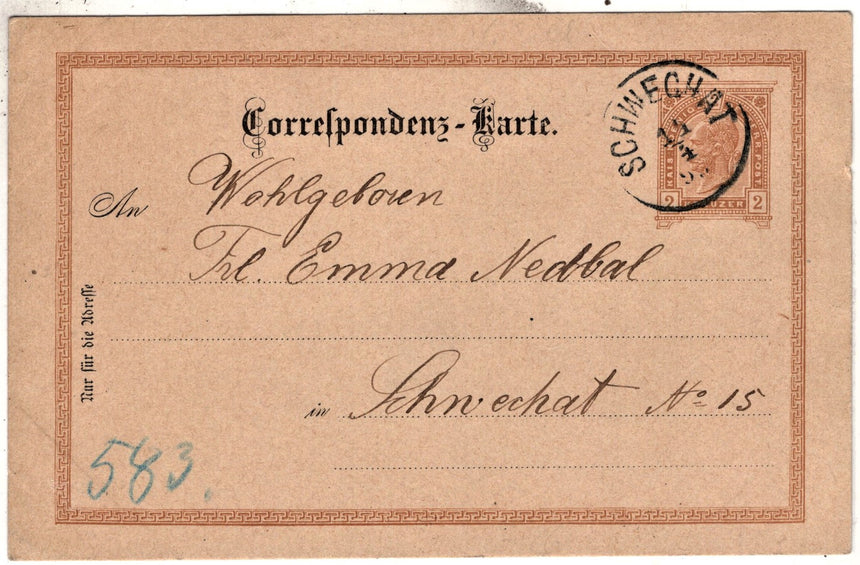 Correspondenz-Karte.
SCHWECHAT
2 KREUZER 2
An Wohlgeboren
Frl. Emma Nedbal
in Schwechat No 15
Nur für die Adresse
583.